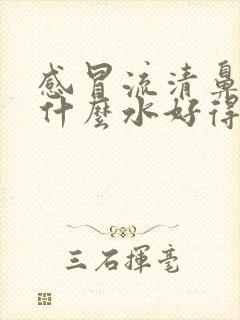 感冒流清鼻
什麼水好得
三石揮毫